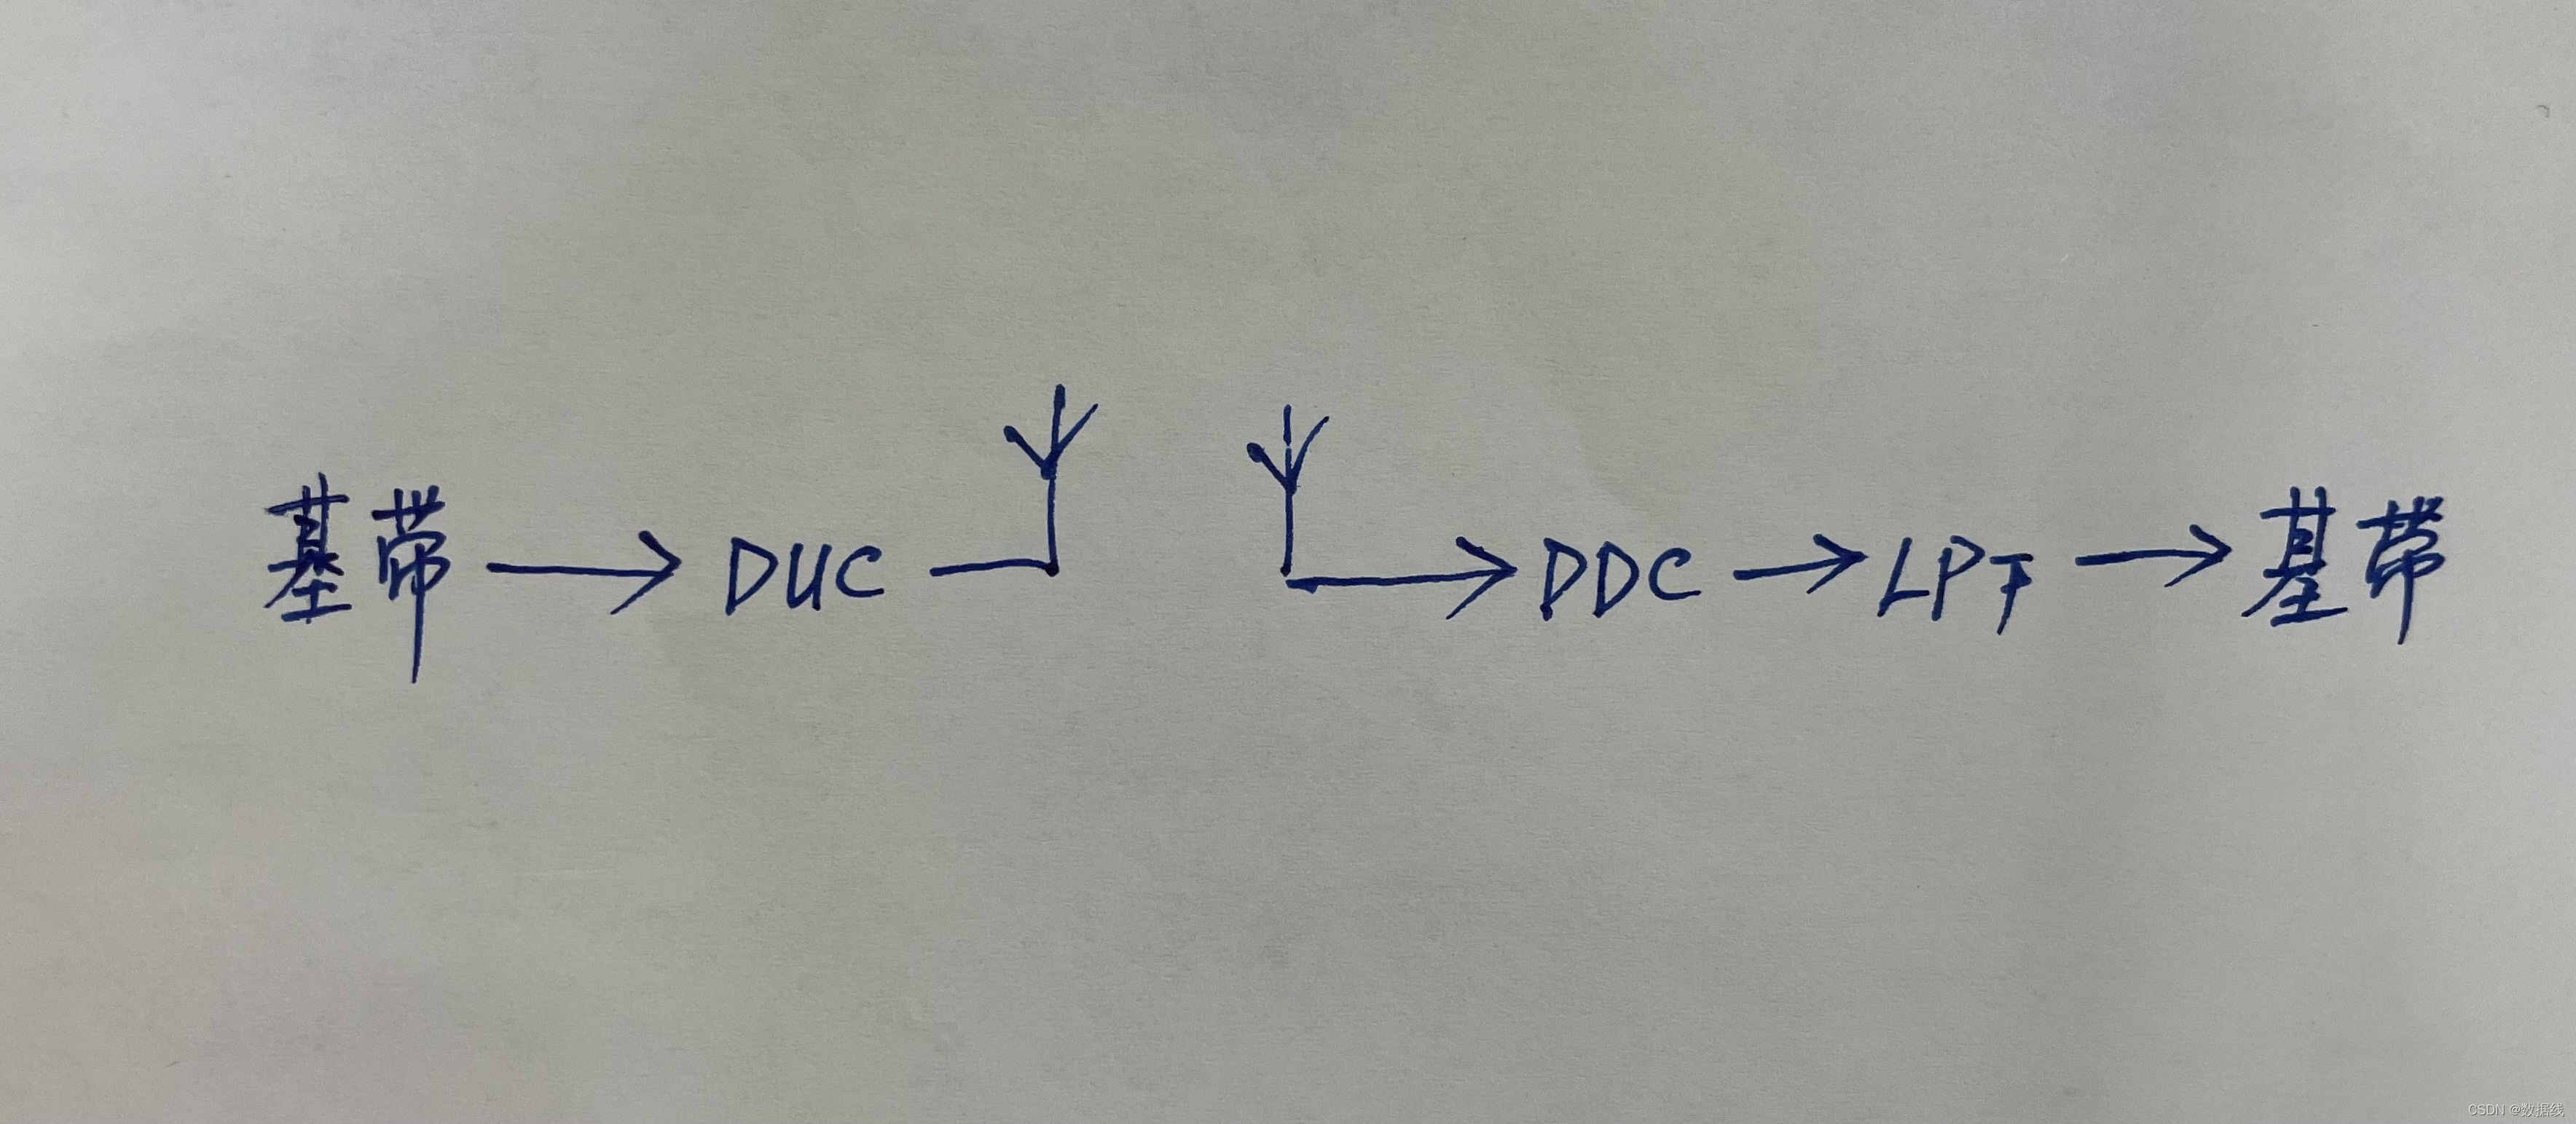 基带 → DUC → DDC → LPF → 基带
CSDN @数据线